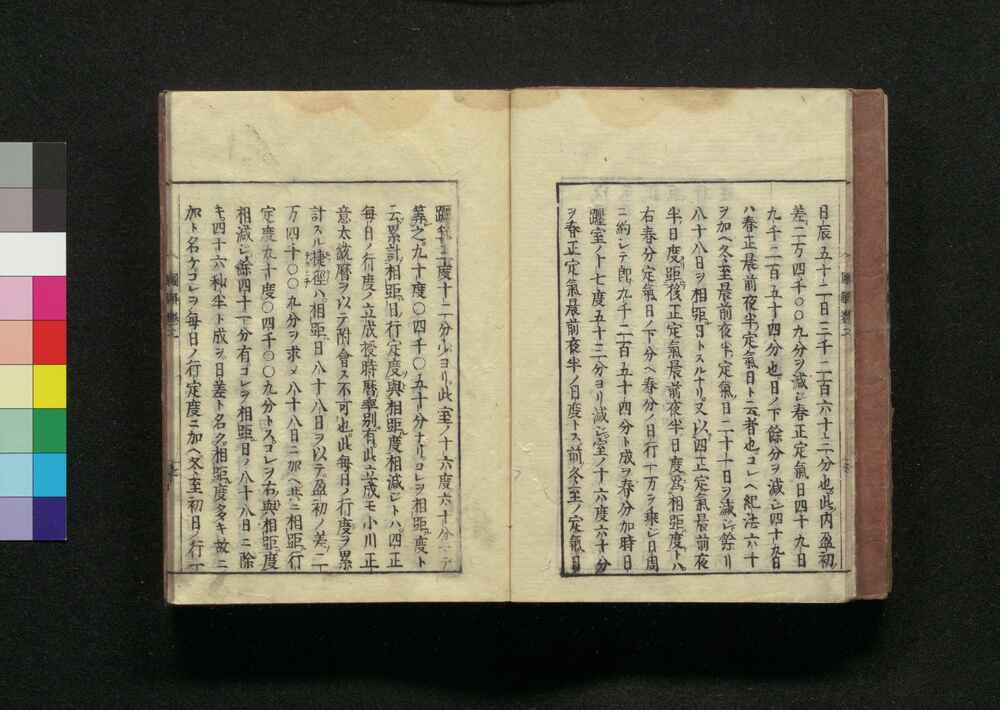 日辰五十二日三千二百六十二分也此内盈初
差二万四千〇〇九分ヲ減シ春正定氣日四十九日
九千二百五十四分也日ノ下餘分ヲ減シ四十九日
ハ春正晨前夜半定氣日ト云者也コレヘ紀法六十
ヲ加ヘ冬至晨前夜半定氣日二十一日ヲ減シ餘リ
八十八日ヲ相距日トスルナリ又以四正定氣晨前夜
半日度距後正定氣晨前夜半日度爲相距度トハ
右春分定氣日ノ下分ヘ春分ノ日行一万ヲ乘シ日周
ニ約シテ即九千二百五十四分ト成ヲ春分加時日
躔室ノ十七度五十二分ヨリ減シ室ノ十六度六十分
ヲ春正定氣晨前夜半ノ日度トス前冬至ノ定氣日
躔箕五度十二分少ヨリ此室ノ十六度六十分マテ
算之九十度〇四千〇五十分ナリコレヲ相距度ト
云累計相距日行定度與相距度相減シトハ四正
毎日ノ行度ノ立成授時暦率別有此立成モ小川正
意太該暦ヲ以テ附會ス不可也此毎日ノ行度ヲ累
計スル捷徑ハ相距日八十八日ヲ以テ盈初ノ差二
万四十〇〇九分ヲ求メ八十八日ニ加ヘ共ニ相距行
定度九十度〇四千〇〇九分トスコレヲ右與相距度
相減シ餘四十一分有コレヲ相距日ノ八十八日ニ除
キ四十六秒半ト成ヲ日差ト名ク相距度多キ故ニ
加ト名ケコレヲ毎日ノ行定度ニ加ヘ冬至初日ノ行一